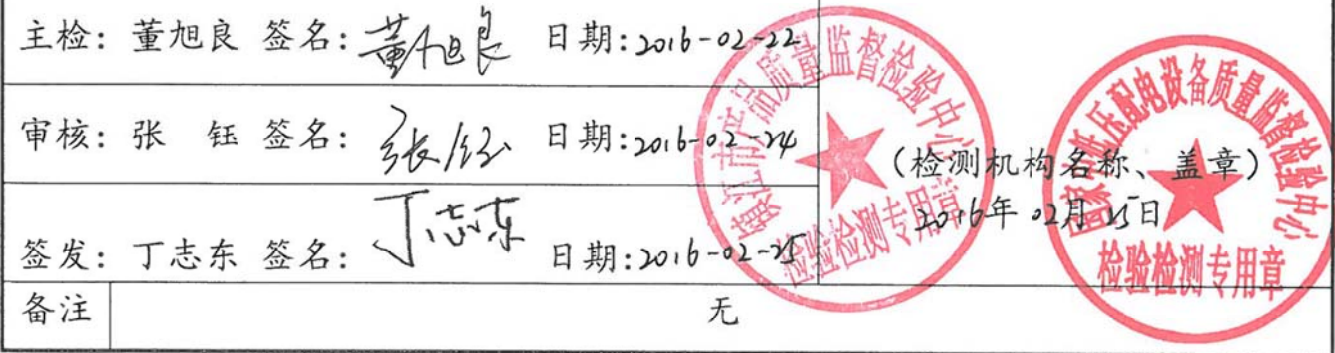 主检: 董旭良 签名: 董旭良 日期:2016-02-22
审核: 张 钰 签名: 张钰 日期:2016-02-24
签发: 丁志东 签名: 丁志东 日期:2016-02-25
(检测机构名称、盖章)
2016年 02月 25日
镇江市产品质量监督检验中心
检验检测专用章
国家低压配电设备质量监督检验中心
检验检测专用章
备注 无